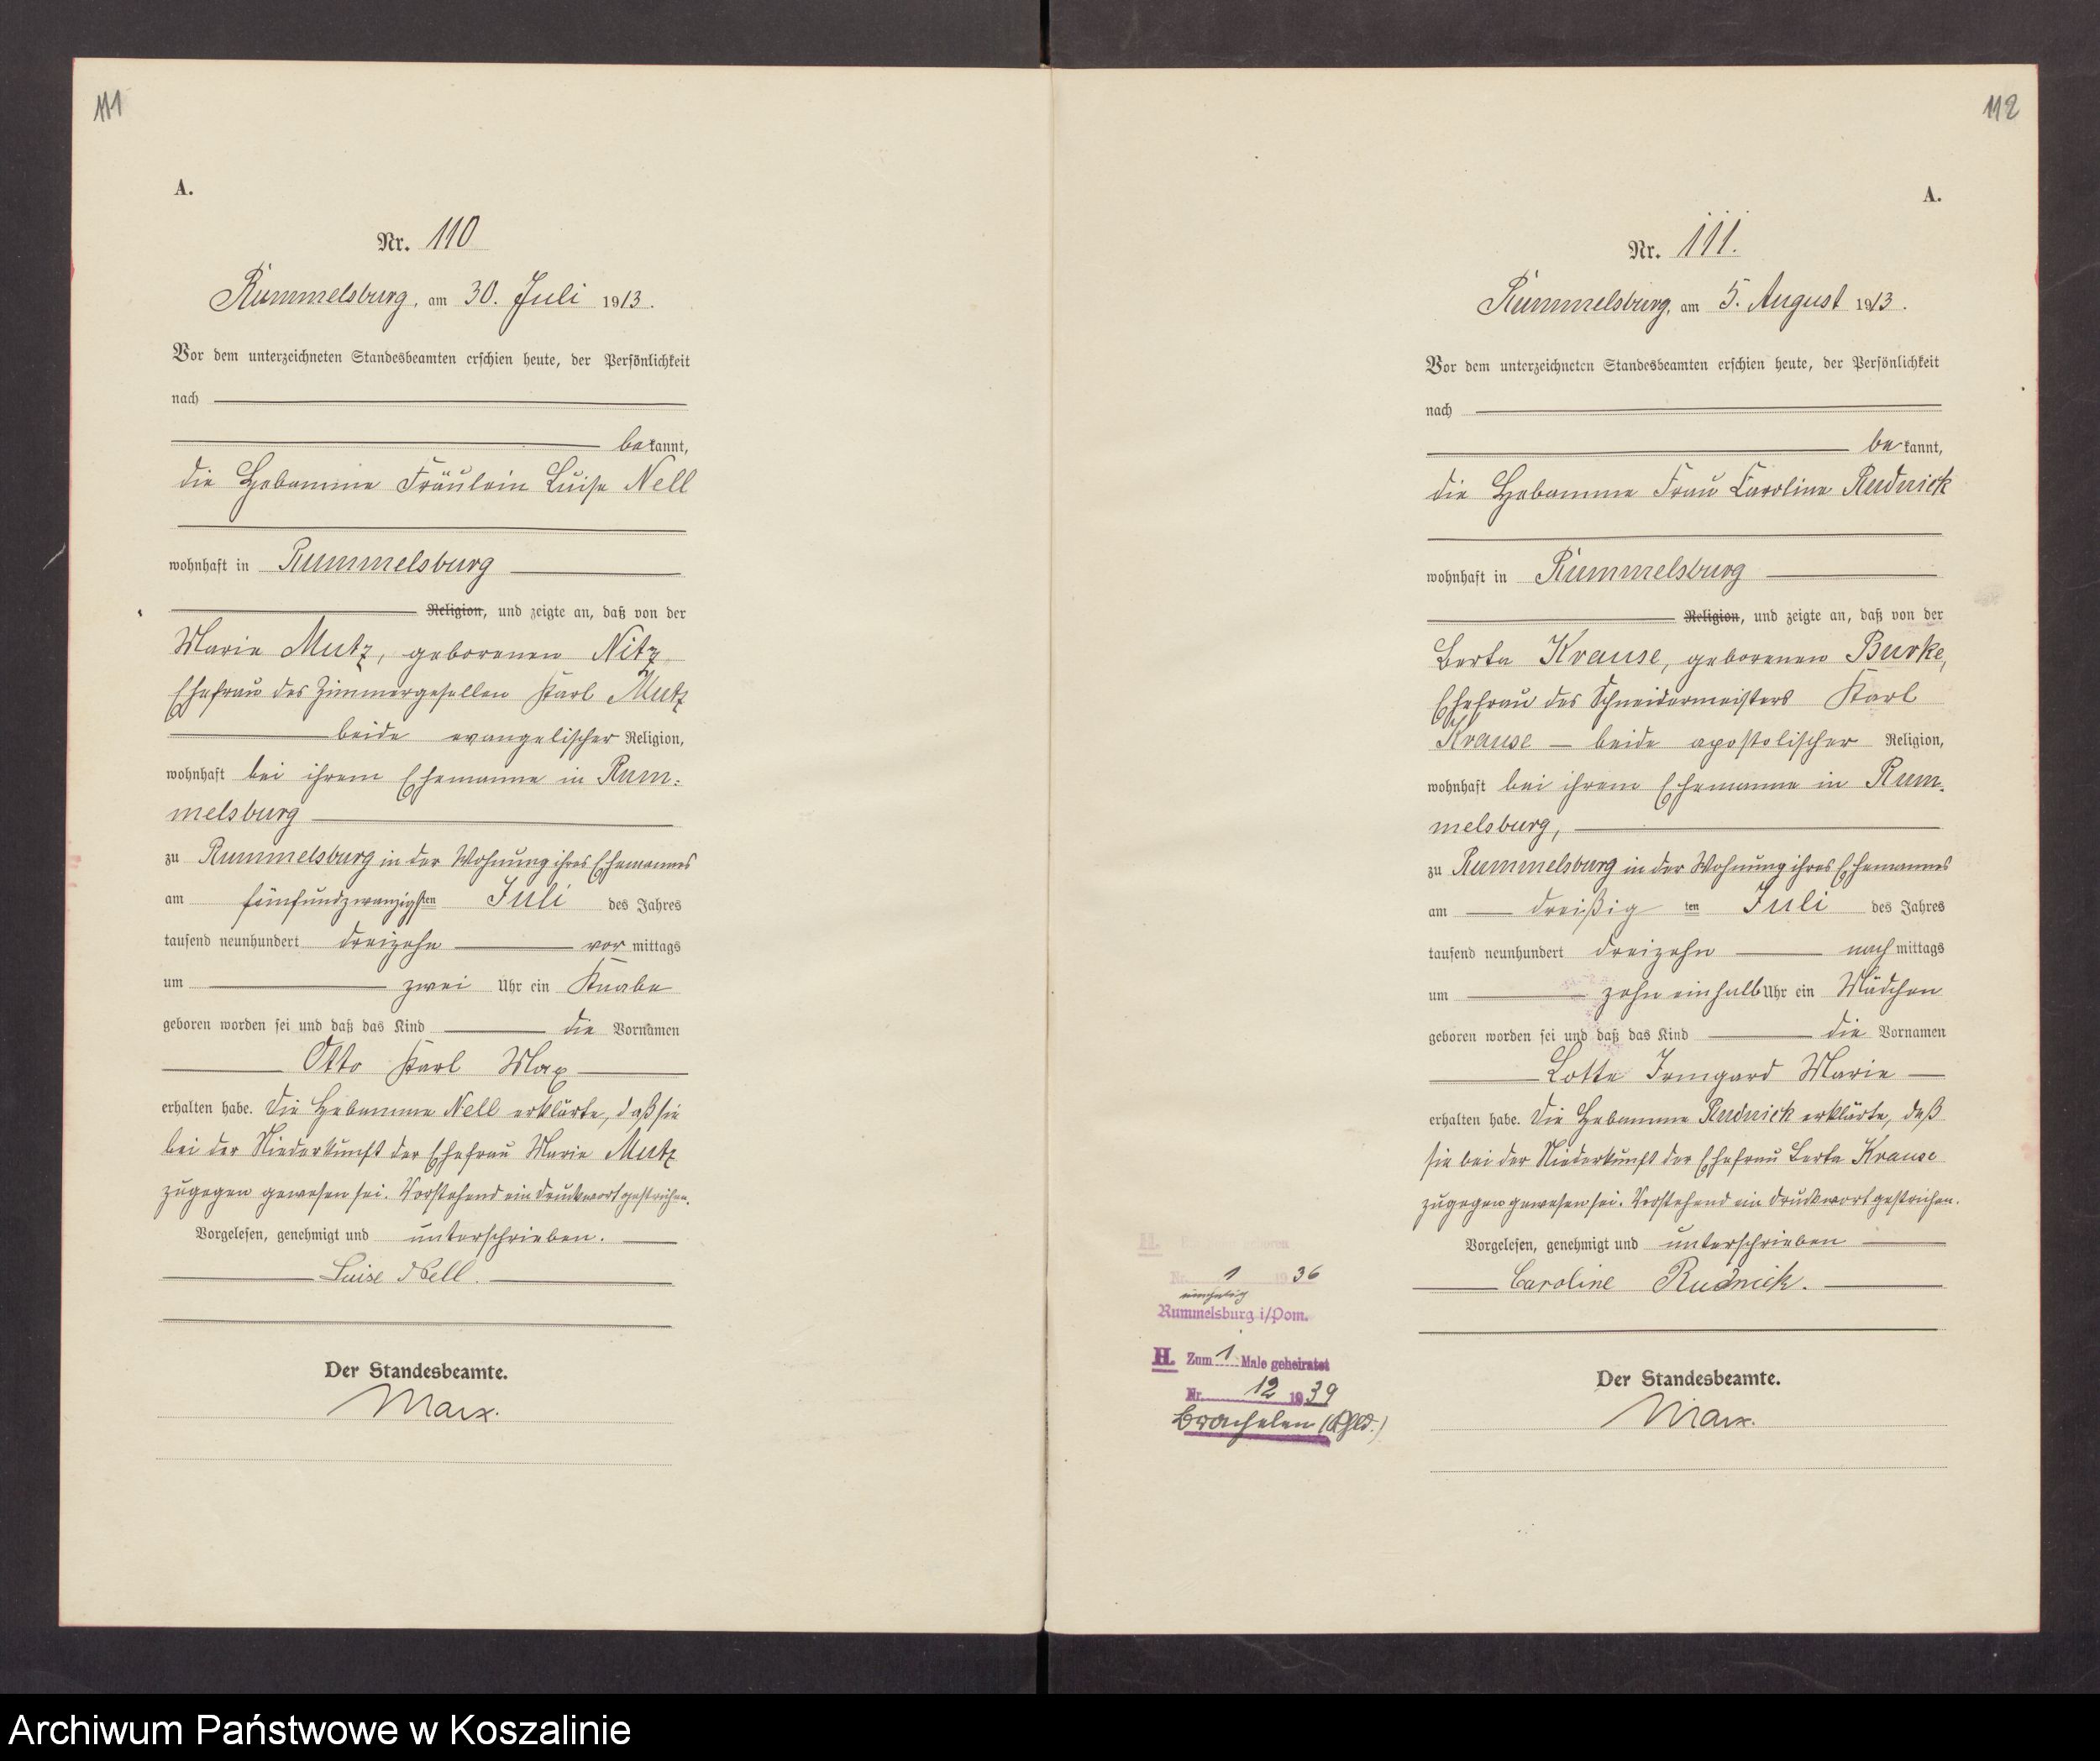 111
A.
Nr. 110
Rummelsburg, am 30. Juli 1913.
Vor dem unterzeichneten Standesbeamten erschien heute, der Persönlichkeit
nach
bekannt,
die Hebamme Fräulein Luise Nell
wohnhaft in Rummelsburg
Religion, und zeigte an, daß von der
Marie Mutz, geborenen Nitz
Ehefrau des Zimmergesellen Karl Mutz
beide evangelischer Religion,
wohnhaft bei ihrem Ehemanne in Rum:
melsburg
zu Rummelsburg in der Wohnung ihres Ehemannes
am fünfundzwanzigsten Juli des Jahres
tausend neunhundert dreizehn vormittags
um zwei Uhr ein Knabe
geboren worden sei und daß das Kind die Vornamen
Otto Karl Max
erhalten habe. Die Hebamme Nell erklärte, daß sie
bei der Niederkunft der Ehefrau Marie Mutz
zugegen gewesen sei. Vorstehend ein Druckwort gestrichen.
Vorgelesen, genehmigt und unterschrieben.
Luise Nell.
Der Standesbeamte.
Marx.
112
A.
Nr. 111.
Rummelsburg, am 5. August 1913.
Vor dem unterzeichneten Standesbeamten erschien heute, der Persönlichkeit
nach
bekannt,
die Hebamme Frau Caroline Rudnick
wohnhaft in Rummelsburg
Religion, und zeigte an, daß von der
Berta Krause, geborenen Burke,
Ehefrau des Schneidermeisters Karl
Krause – beide apostolischer Religion,
wohnhaft bei ihrem Ehemanne in Rum:
melsburg,
zu Rummelsburg in der Wohnung ihres Ehemannes
am dreißigten Juli des Jahres
tausend neunhundert dreizehn nachmittags
um zehn einhalb Uhr ein Mädchen
geboren worden sei und daß das Kind die Vornamen
Lotte Irmgard Marie
erhalten habe. Die Hebamme Rudnick erklärte, daß
sie bei der Niederkunft der Ehefrau Berta Krause
zugegen gewesen sei. Vorstehend ein Druckwort gestrichen.
Vorgelesen, genehmigt und unterschrieben
Caroline Rudnick.
Der Standesbeamte.
Marx.
H.
Nr. 1 1936
Rummelsburg i/Pom.
H. Zum 1 Male geheiratet
Nr. 12 1939
Brachelen (Rhld.)
Archiwum Państwowe w Koszalinie